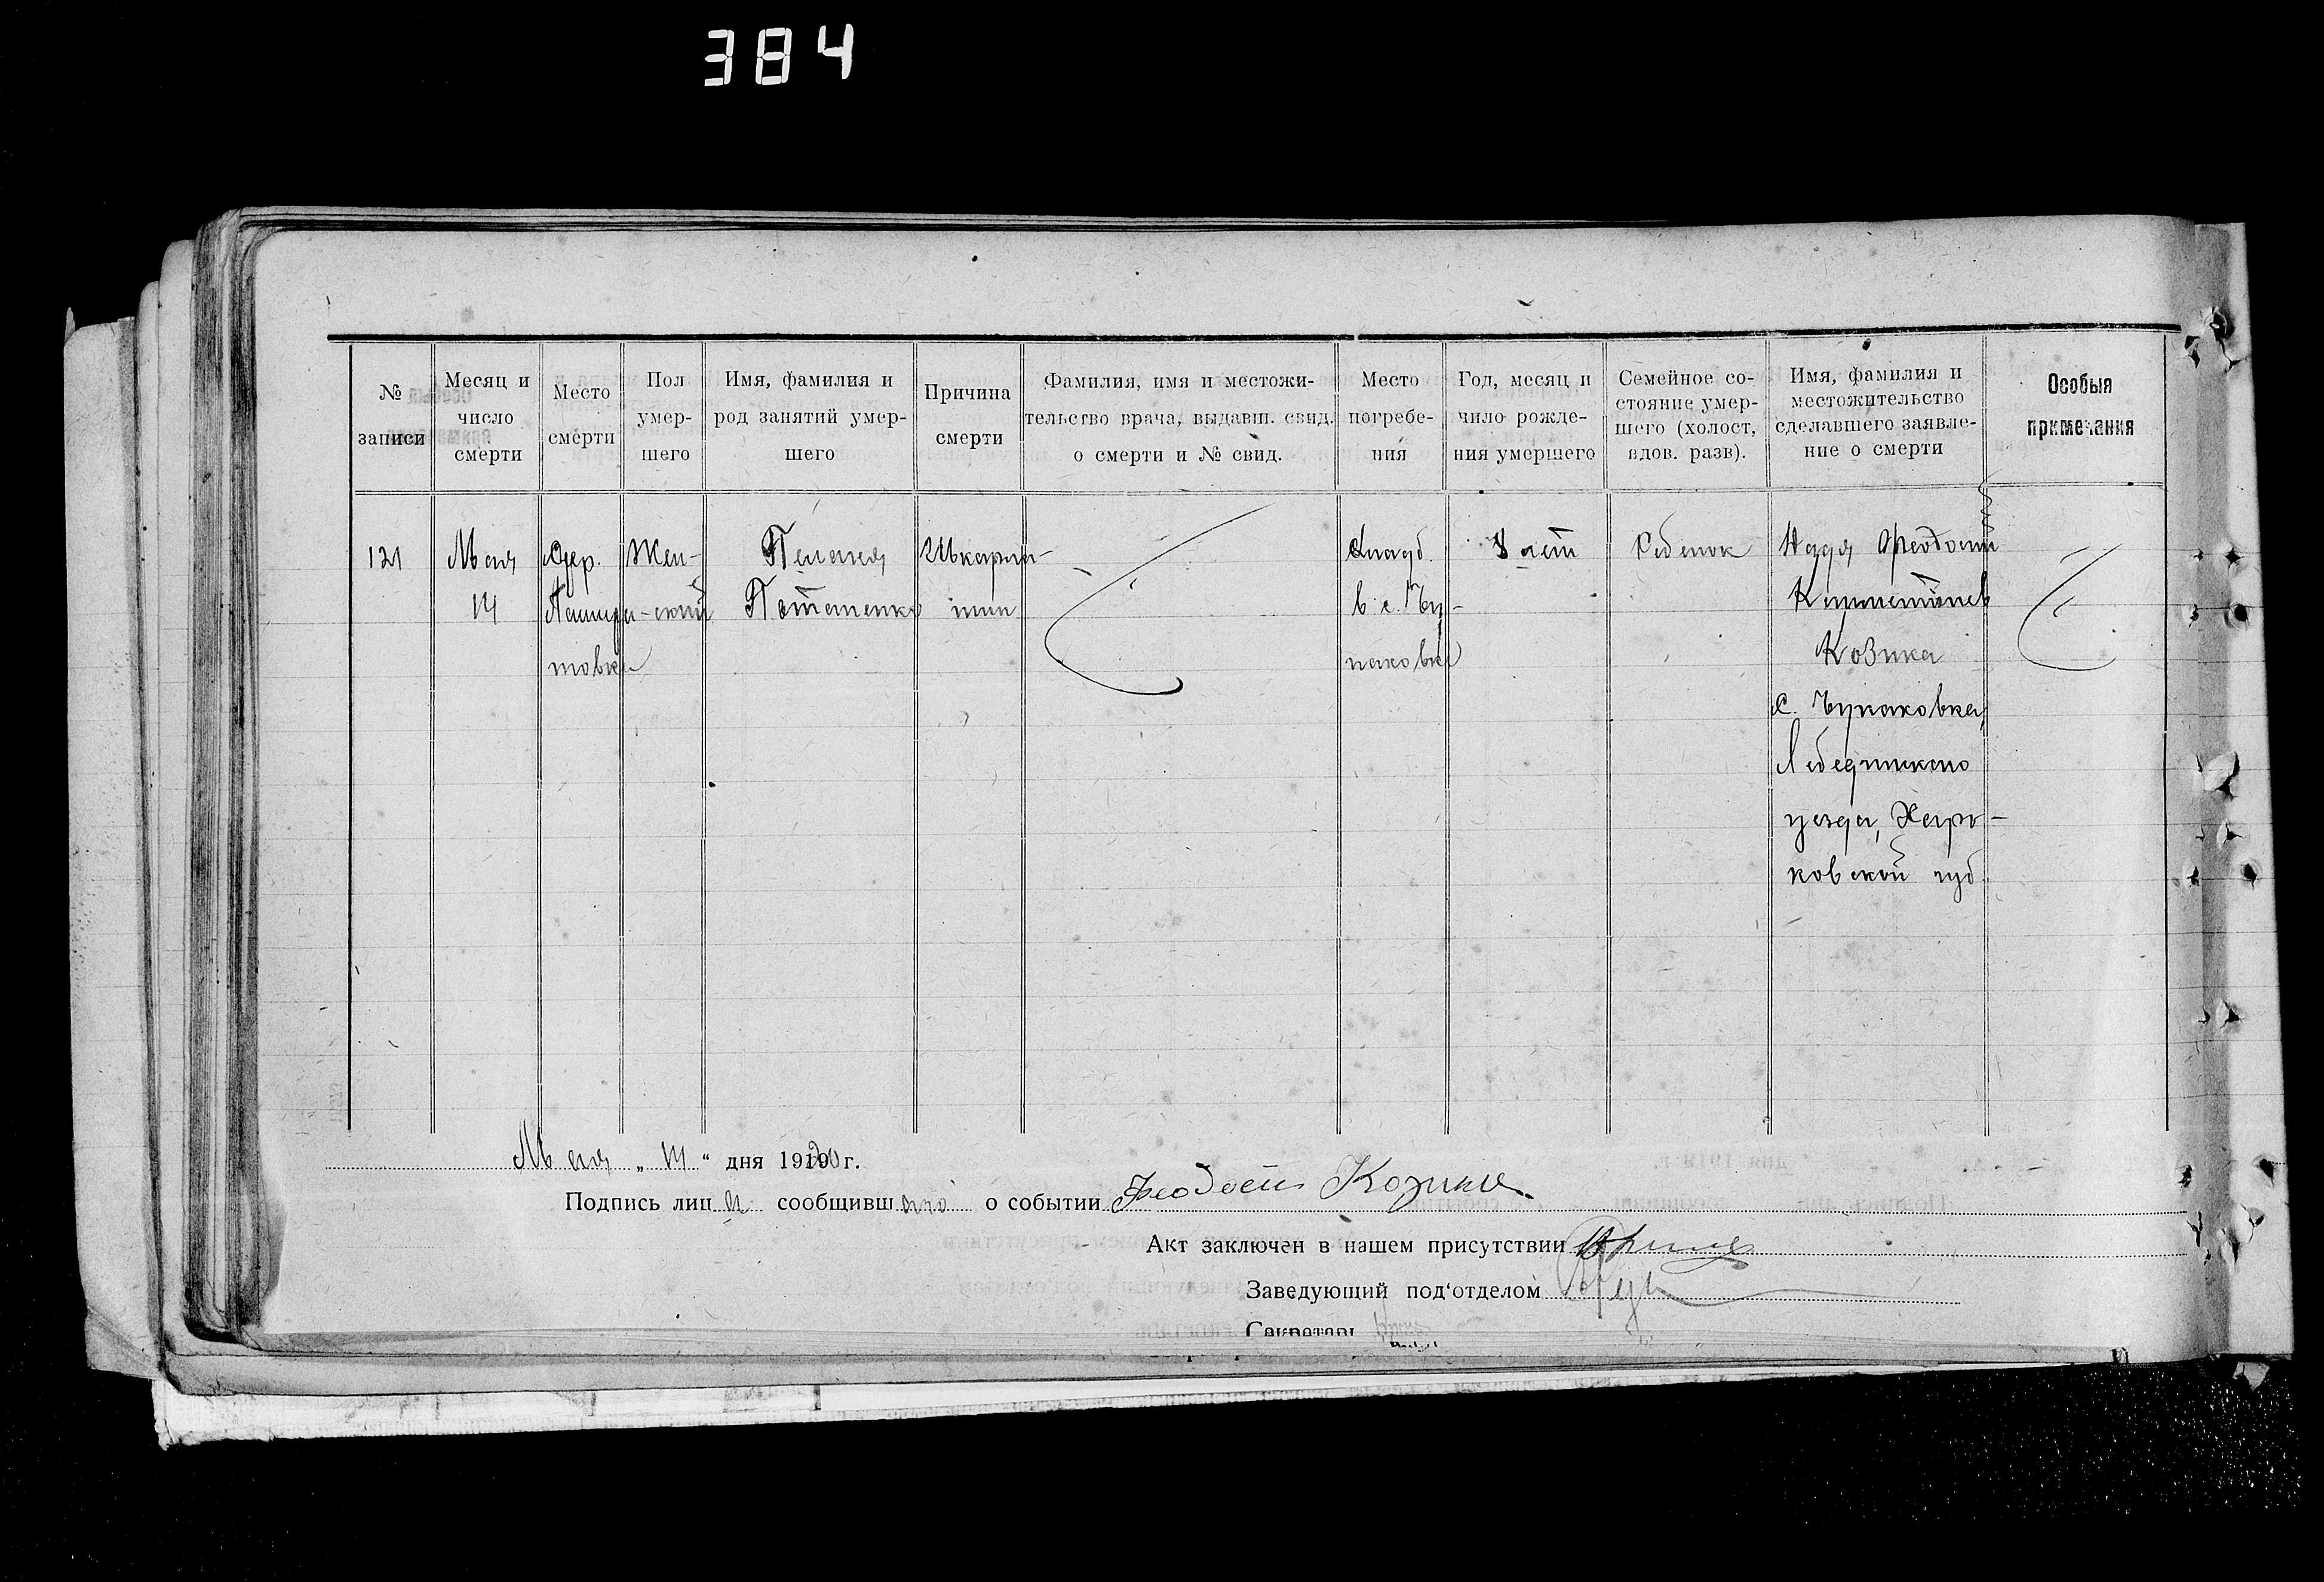 384
№ записи
Месяц и число смерти
Место смерти
Пол умер- шего
Имя, фамилия и род занятий умер- шего
Причина смерти
Фамилия, имя и местожи- тельство врача, выдавш. свид. о смерти и № свид.
Место погребе- ния
Год, месяц и число рожде- ния умершего
Семейное со- стояние умер- шего (холост, вдов. разв).
Имя, фамилия и местожительство сделавшего заявле- ние о смерти
Особыя примечания
121
Мая
14
Дер.
товка
Жен-
ский
Пелагея
Потапенко
Шкарла-
тин
Кладб.
в с. Чу-
паховке
8 лет
Ребенок
Дядя Феодосий
Козика
с. Чупаховка,
Лебединского
уезда, Харь-
ковской губ.
Мая „ 14 “ дня 1920 г.
Подпись лица сообщившаго о событии Феодосий Козика
Акт заключен в нашем присутствии
Заведующий под‘отделом
Секретарь